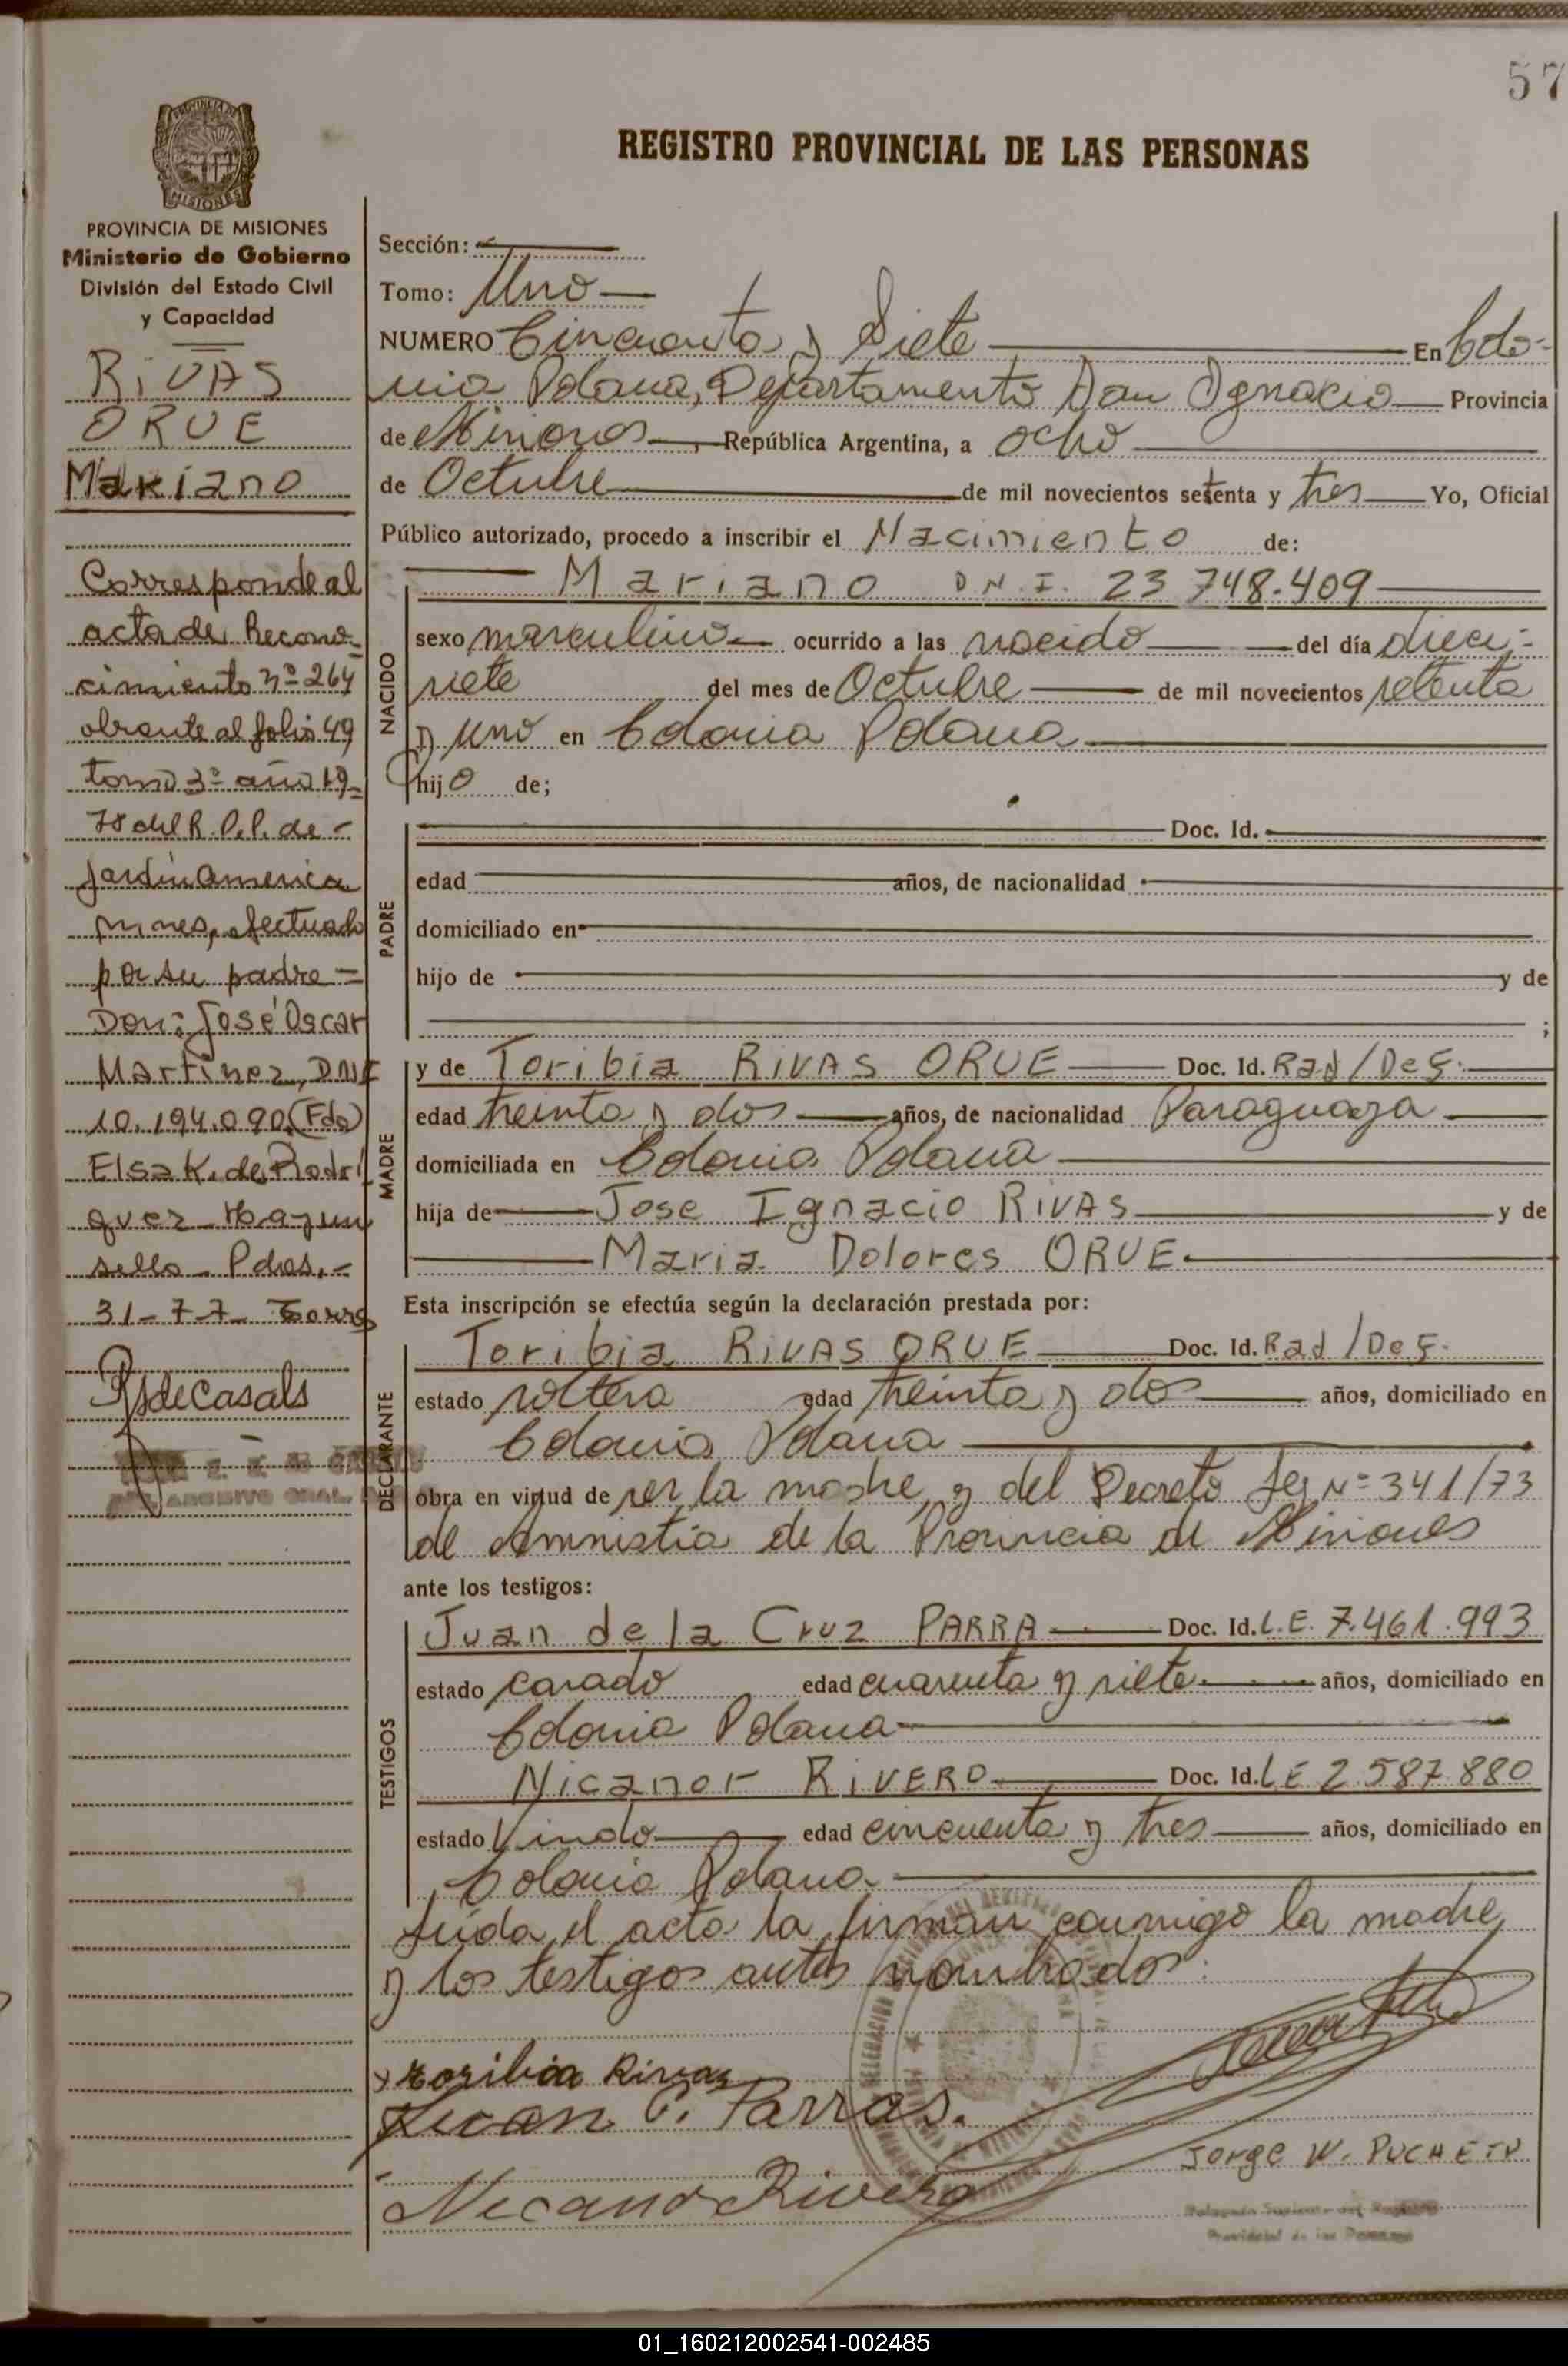 57
REGISTRO PROVINCIAL DE LAS PERSONAS
PROVINCIA DE
MISIONES
PROVINCIA DE MISIONES
Ministerio de Gobierno
División del Estado Civil
y Capacidad
RIVAS
ORUE
Mariano
Corresponde al
acta de Recono-
cimiento nº 264
obrante al folio 49
tomo 3º año 19-
78 del R.P.P. de -
Jardin America
mnes, efectuado
por su padre =
Don: José Oscar
Martinez, DNI
10.194.090 (Fdo)
Elsa K. de Rodri
guez Hay un
sello - Pdas.-
31-7-7-
Rsdecasals
Sección:
Tomo: Uno
NUMERO Cincuenta y Siete En Colo-
nia Polana, Departamento San Ignacio Provincia
de Misiones, República Argentina, a ocho
de Octubre de mil novecientos setenta y tres Yo, Oficial
Público autorizado, procedo a inscribir el Nacimiento de:
NACIDO
Mariano D.N.I. 23.748.409
sexo masculino ocurrido a las nacido del día dieci-
siete del mes de Octubre de mil novecientos setenta
y uno en Colonia Polana
hijo de;
PADRE
Doc. Id.
edad años, de nacionalidad
domiciliado en
hijo de y de
;
MADRE
y de Toribia RIVAS ORUE Doc. Id. Rad/Def.
edad treinta y dos años, de nacionalidad Paraguaya
domiciliada en Colonia Polana
hija de Jose Ignacio RIVAS y de
Maria Dolores ORUE.
Esta inscripción se efectúa según la declaración prestada por:
DECLARANTE
Toribia RIVAS ORUE Doc. Id. Rad/Def.
estado soltera edad treinta y dos años, domiciliado en
Colonia Polana
obra en virtud de ser la madre y del Decreto Ley Nº 341/73
de Amnistia de la Provincia de Misiones
ante los testigos:
TESTIGOS
Juan de la Cruz PARRA Doc. Id. L.E. 7.461.993
estado casado edad cuarenta y siete años, domiciliado en
Colonia Polana
Nicanor RIVERO Doc. Id. LE 2.587.880
estado Viudo edad cincuenta y tres años, domiciliado en
Colonia Polana.
Leida el acta la firman conmigo la madre
y los testigos antes nombrados.
Toribia Rivas
Juan C. Parras.
Nicanor Rivero
Jorge W. PUCHETA
Delegado Suplente del Registro
Provincial de las Personas
01_160212002541-002485